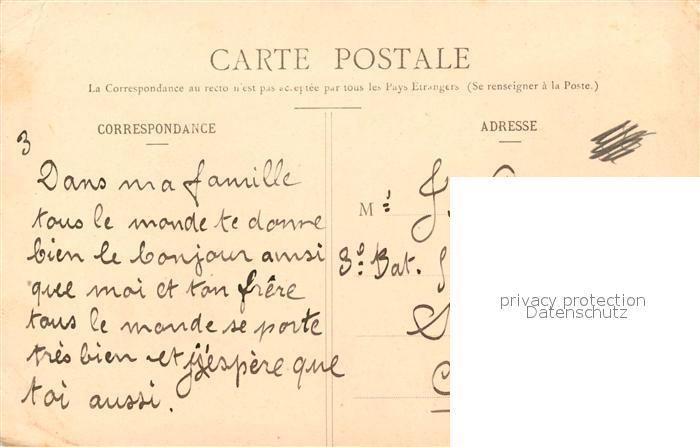 CARTE POSTALE
La Correspondance au recto n'est pas acceptée par tous les Pays Etrangers (Se renseigner à la Poste.)
CORRESPONDANCE
ADRESSE
3
Dans ma famille
tous le monde te donne
bien le bonjour ainsi
que moi et ton frère
tous le monde se porte
très bien et j'espère que
toi aussi.
M
3e Bat.
privacy protection
Datenschutz